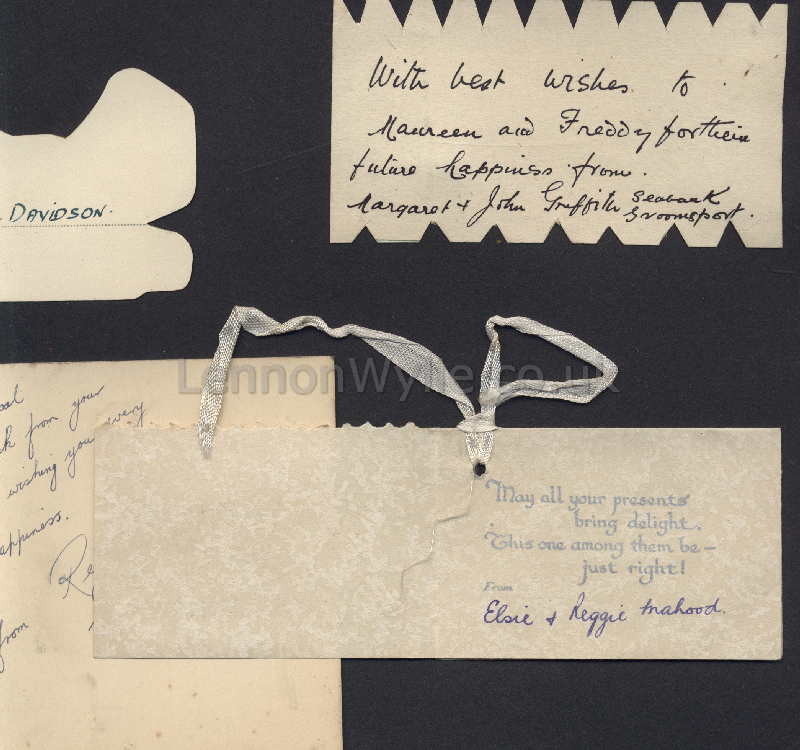 With best wishes to
Maureen and Freddy for their
future happiness from.
Margaret + John Griffith Seabank
Groomsport.
DAVIDSON.
LennonWylie.co.uk
from your
wishing you every
happiness.
from
May all your presents
bring delight.
This one among them be—
just right!
From
Elsie + Reggie Mahood.